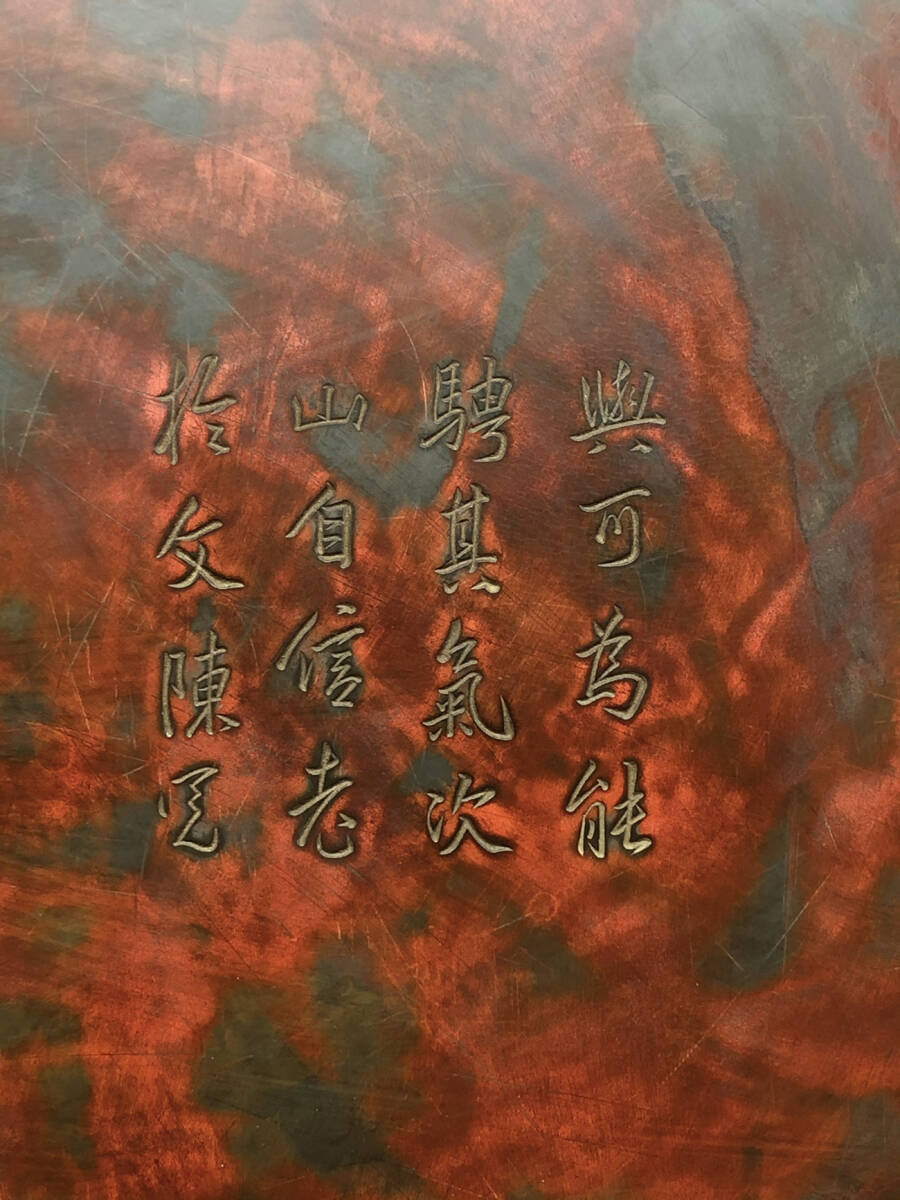 與可為能
騁其氣次
山自信老
於文陳冕